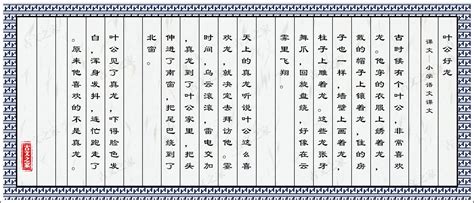 叶公好龙
课文 小学语文课文
古时候有个叶公,非常喜欢
龙。他穿的衣服上绣着龙,戴
的帽子上镶着龙,住的房
子也一样,墙壁上画着龙,
柱子上雕着龙。这些龙张牙
舞爪,回旋盘绕,好像在云
雾里飞翔。
天上的真龙听说叶公这么喜
欢龙,就决定去
时间,乌云滚滚,雷电交加
,龙来到了叶公家里,把头
伸进了南窗,把尾巴绕到了
北窗。
叶公见了真龙,吓得脸色发
白,浑身发抖,连忙跑走了
。原来他喜欢的不是真龙。